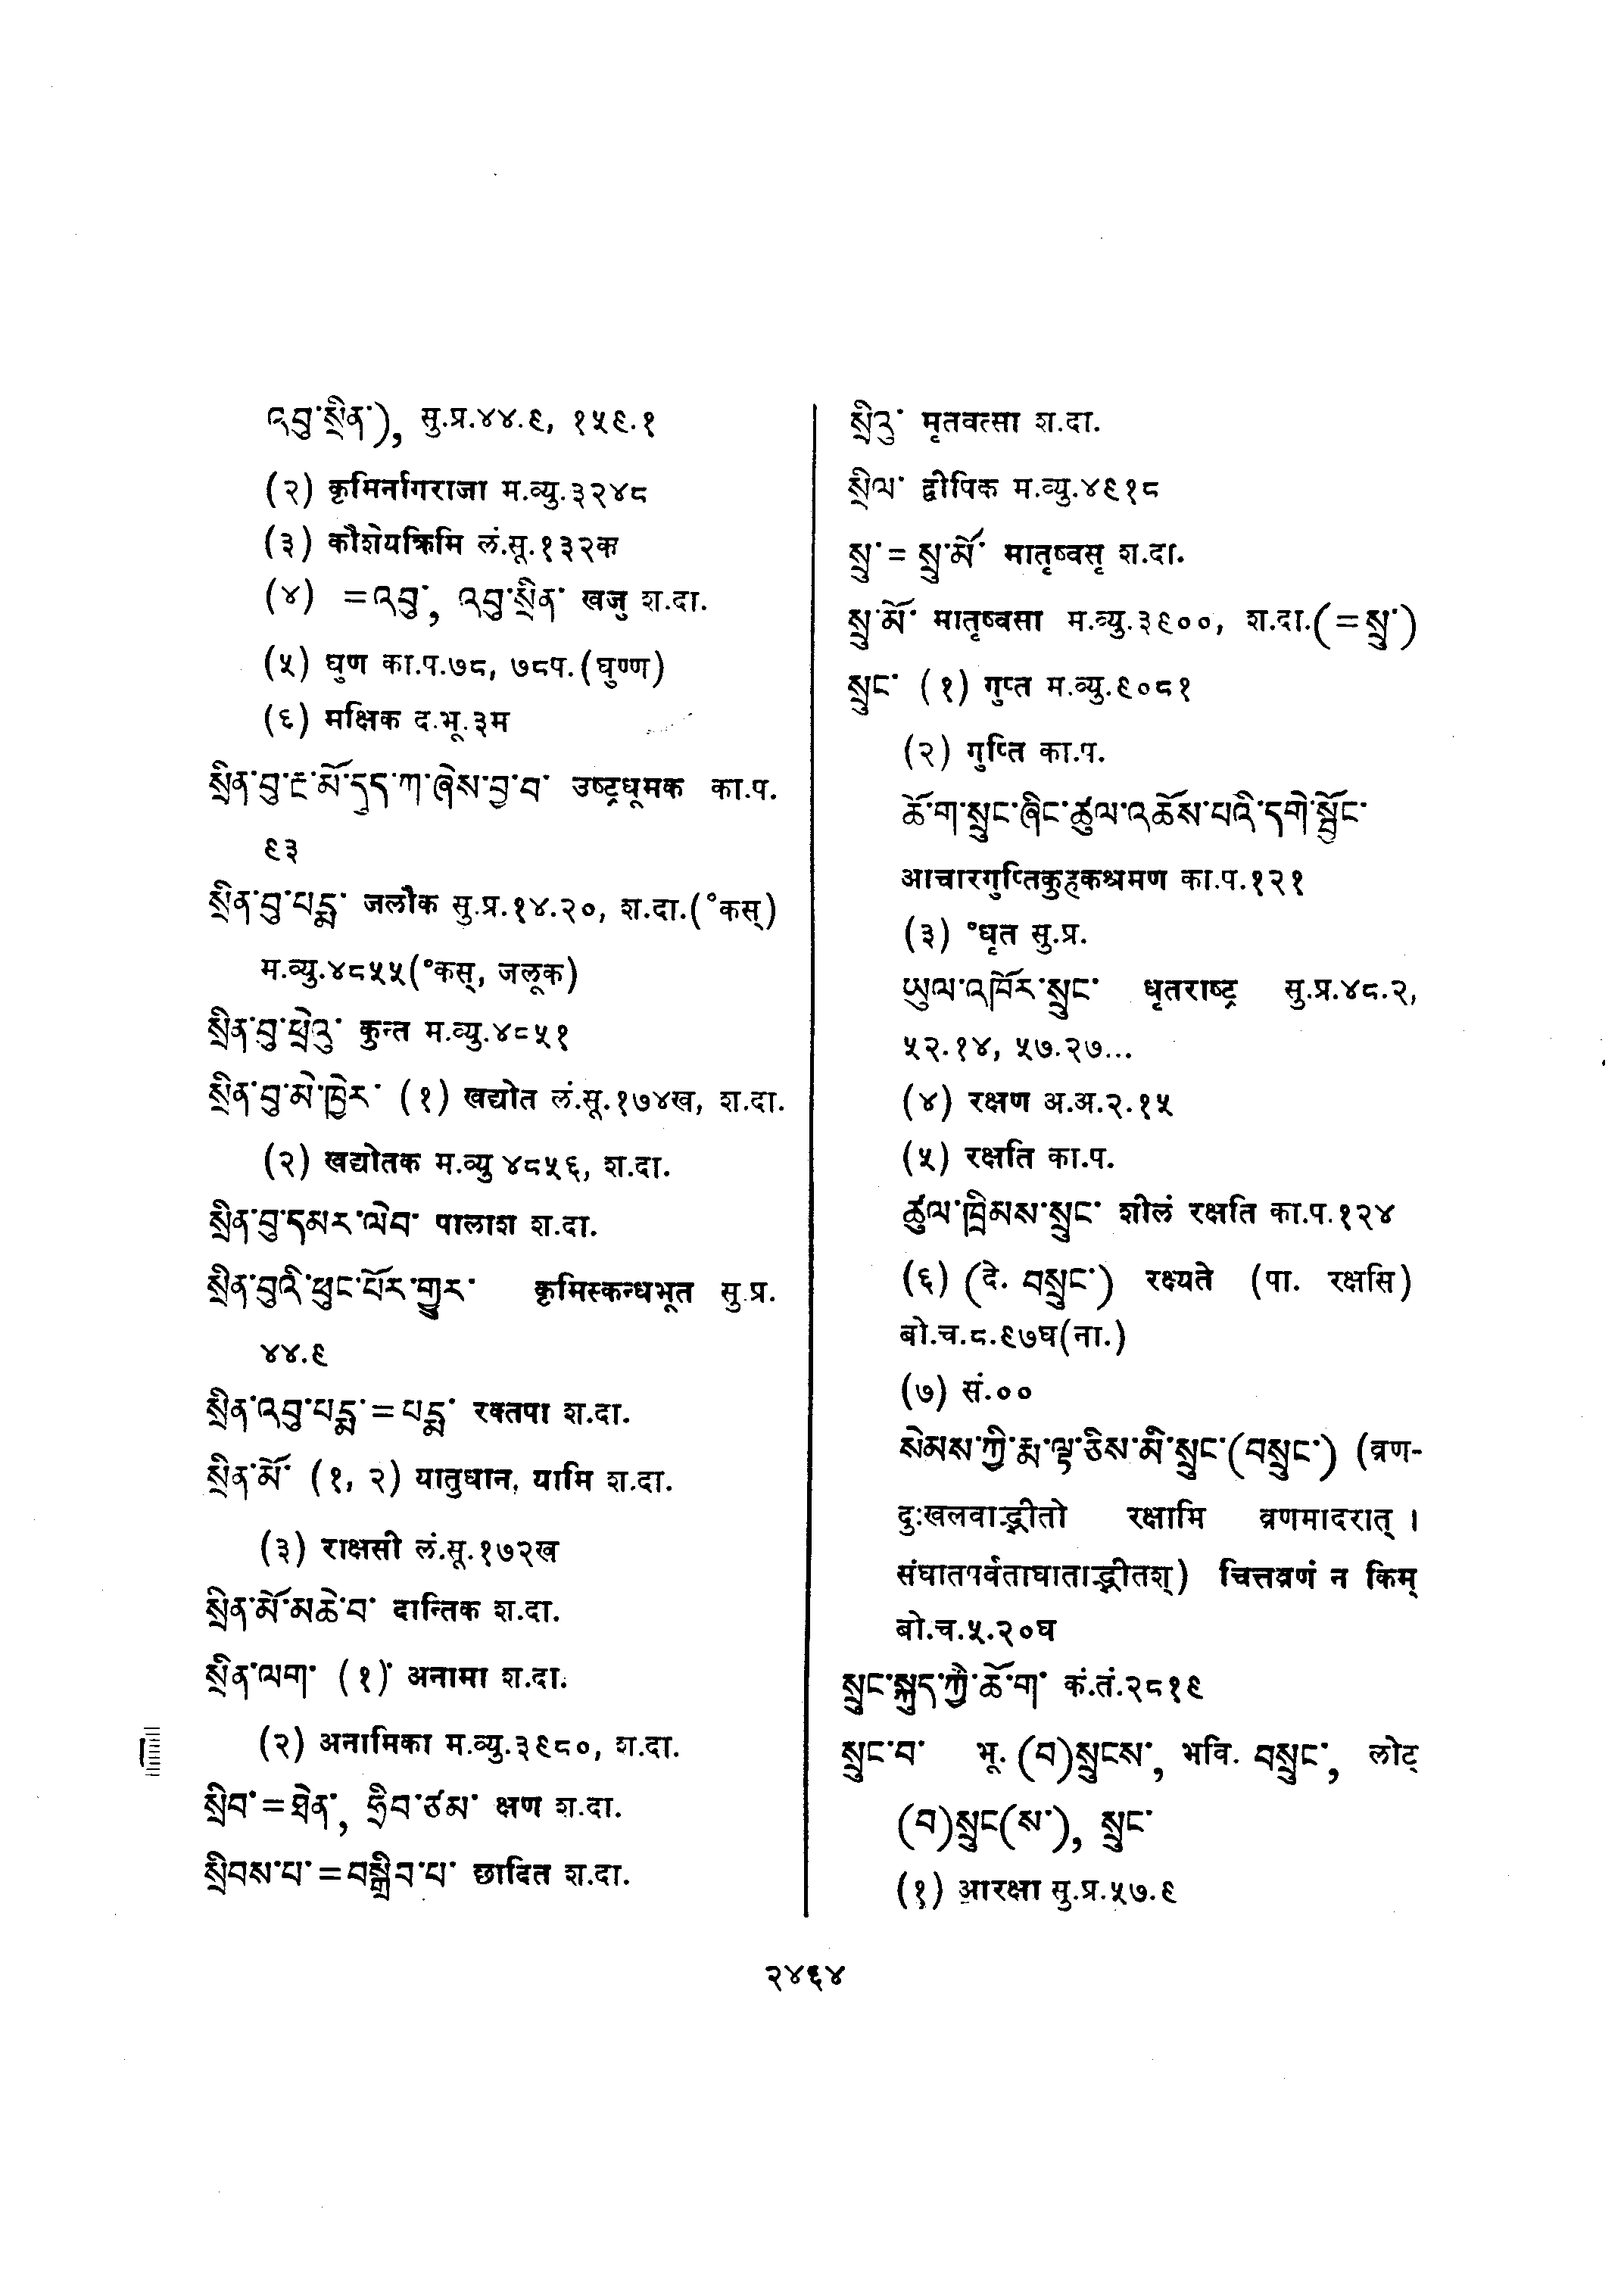 འབུ་སྲིན་), सु.प्र.४४.९, १५९.१
(२) कृमिर्नागराजा म.व्यु.३२४८
(३) कौशेयक्रिमि लं.सू.१३२क
(४) =འབུ་, འབུ་སྲིན་ खजु श.दा.
(५) घुण का.प.७८, ७८प.(घुण्ण)
(६) मक्षिक द.भू.३म
སྲིན་བུ་རྔ་མོ་དུད་ཀ་ཞེས་བྱ་བ་ उष्ट्रधूमक का.प.
९३
སྲིན་བུ་པདྨ་ जलौक सु.प्र.१४.२०, श.दा.(°कस्)
म.व्यु.४८५५(°कस्, जलूक)
སྲིན་བུ་ཕྲེའུ་ कुन्त म.व्यु.४८५१
སྲིན་བུ་མེ་ཁྱེར་ (१) खद्योत लं.सू.१७४ख, श.दा.
(२) खद्योतक म.व्यु ४८५६, श.दा.
སྲིན་བུ་དམར་ལེབ་ पालाश श.दा.
སྲིན་བུའི་ཕུང་པོར་གྱུར་ कृमिस्कन्धभूत सु.प्र.
४४.९
སྲིན་འབུ་པདྨ་=པདྨ་ रक्तपा श.दा.
སྲིན་མོ་ (१, २) यातुधान, यामि श.दा.
(३) राक्षसी लं.सू.१७२ख
སྲིན་མོ་མཆེ་བ་ दान्तिक श.दा.
སྲིན་ལག་ (१) अनामा श.दा.
(२) अनामिका म.व्यु.३९८०, श.दा.
སྲིབ་=ཐེན་, ཧྲིབ་ཙམ་ क्षण श.दा.
སྲིབས་པ་=བསྒྲིབ་པ་ छादित श.दा.
སྲིའུ་ मृतवत्सा श.दा.
སྲིལ་ द्वीपिक म.व्यु.४९१८
སྲུ་=སྲུ་མོ་ मातृष्वसृ श.दा.
སྲུ་མོ་ मातृष्वसा म.व्यु.३९००, श.दा.(=སྲུ་)
སྲུང་ (१) गुप्त म.व्यु.९०८१
(२) गुप्ति का.प.
ཆོ་ག་སྲུང་ཞིང་ཚུལ་འཆོས་པའི་དགེ་སྦྱོང་
आचारगुप्तिकुहकश्रमण का.प.१२१
(३) °धृत सु.प्र.
ཡུལ་འཁོར་སྲུང་ धृतराष्ट्र सु.प्र.४८.२,
५२.१४, ५७.२७...
(४) रक्षण अ.अ.२.१५
(५) रक्षति का.प.
ཚུལ་ཁྲིམས་སྲུང་ शीलं रक्षति का.प.१२४
(६) (दे. བསྲུང་) रक्ष्यते (पा. रक्षसि)
बो.च.८.९७घ(ना.)
(७) सं.००
སེམས་ཀྱི་རྨ་ལྟ་ཅིས་མི་སྲུང་(བསྲུང་) (व्रण-
दुःखलवाद्भीतो रक्षामि व्रणमादरात् ।
संघातपर्वताघाताद्भीतश्) चित्तव्रणं न किम्
बो.च.५.२०घ
སྲུང་སྐུད་ཀྱི་ཆོ་ག་ कं.तं.२८१९
སྲུང་བ་ भू. (བ)སྲུངས་, भवि. བསྲུང་, लोट्
(བ)སྲུང(ས་), སྲུང་
(१) आरक्षा सु.प्र.५७.९
२४६४